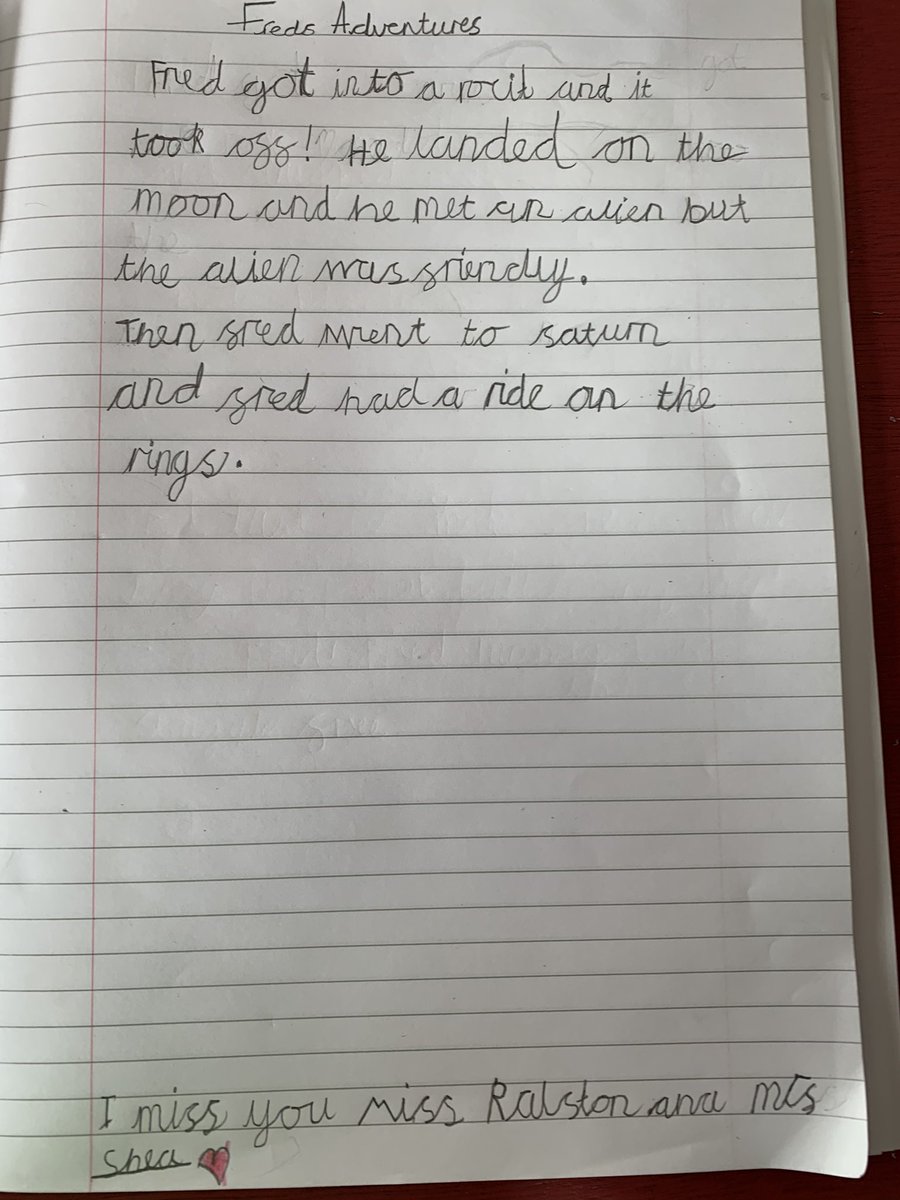 Freds Adventures
Fred got into a rocit and it
took off! He landed on the
moon and he met an alien but
the alien was friendly.
Then fred went to saturn
and fred had a ride on the
rings.
I miss you miss Ralston and mrs
Shea